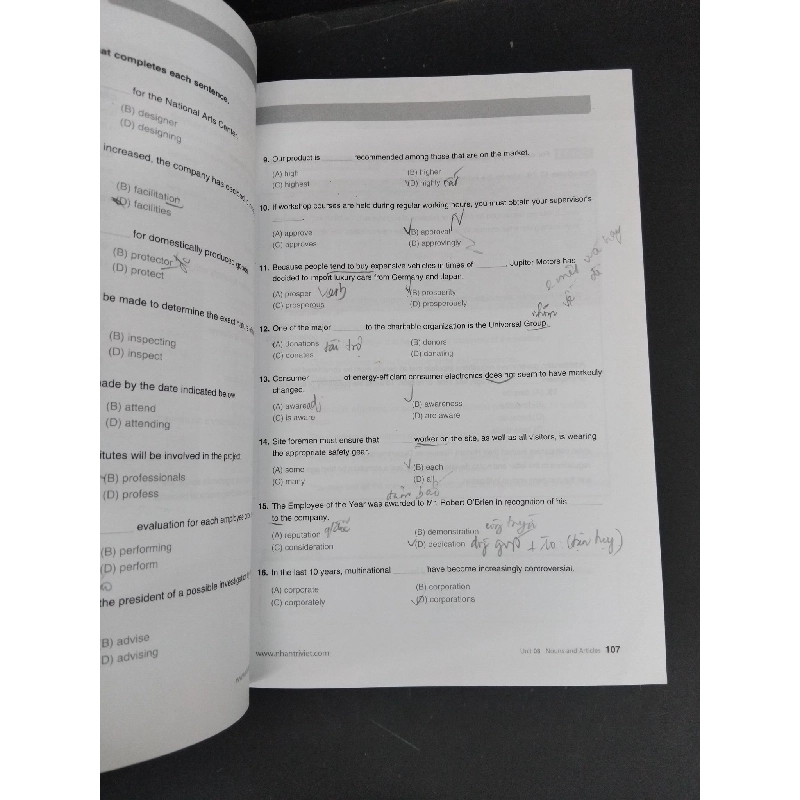 at completes each sentence.
for the National Arts Center.
(B) designer
(D) designing
increased, the company has
(B) facilitation
(D) facilities
for domestically produced
(B) protector
(D) protect
be made to determine the exact
(B) inspecting
(D) inspect
ade by the date indicated below
(B) attend
(D) attending
itutes will be involved in the project.
(B) professionals
(D) profess
evaluation for each employee
(B) performing
(D) perform
the president of a possible investigation
B) advise
D) advising
9. Our product is ______ recommended among those that are on the market.
(A) high (B) higher
(C) highest (D) highly
10. If workshop courses are held during regular working hours, you must obtain your supervisor's
______.
(A) approve (B) approval N
(C) approves (D) approvingly
11. Because people tend to buy expensive vehicles in times of ______, Jupiter Motors has
decided to import luxury cars from Germany and Japan.
(A) prosper verb (B) prosperity
(C) prosperous (D) prosperously
12. One of the major ______ to the charitable organization is the Universal Group.
(A) donations tài trợ (B) donors
(C) donates (D) donating
13. Consumer ______ of energy-efficient consumer electronics does not seem to have markedly
changed.
(A) aware adj (B) awareness
(C) is aware (D) are aware
14. Site foremen must ensure that ______ worker on the site, as well as all visitors, is wearing
the appropriate safety gear.
(A) some (B) each
(C) many (D) all
đảm bảo
15. The Employee of the Year was awarded to Mr. Robert O'Brien in recognition of his ______
to the company.
(A) reputation (B) demonstration
(C) consideration (D) dedication + to
16. In the last 10 years, multinational ______ have become increasingly controversial.
(A) corporate (B) corporation
(C) corporately (D) corporations
www.nhantriviet.com
Unit 08 Nouns and Articles 107